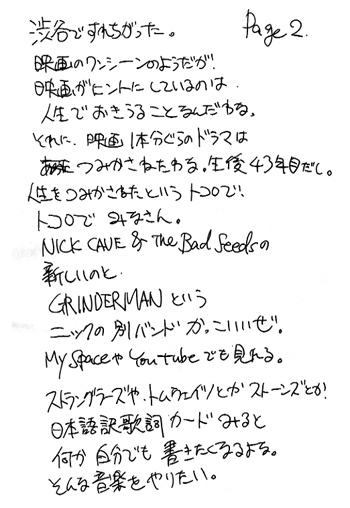 渋谷ですれちがった。 Page 2.
映画のワンシーンのようだが!
映画がヒントにしているのは
人生でおきうることなんだわな。
それに、映画1本分ぐらのドラマは
つみかさねたわな。生後43年目だし。
人生をつみかさねたというトコロで!
トコロで みなさん。
NICK CAVE & The Bad Seedsの
新しいのと、
GRINDERMAN という
ニックの別バンドがっこいいぜ。
My SpaceやYoutubeでも見れる。
ストラングラーズや、トムウェイツとかストーンズとか!
日本語訳歌詞カードみると
何か自分でも書きたくなるよな。
そんな音楽をやりたい。